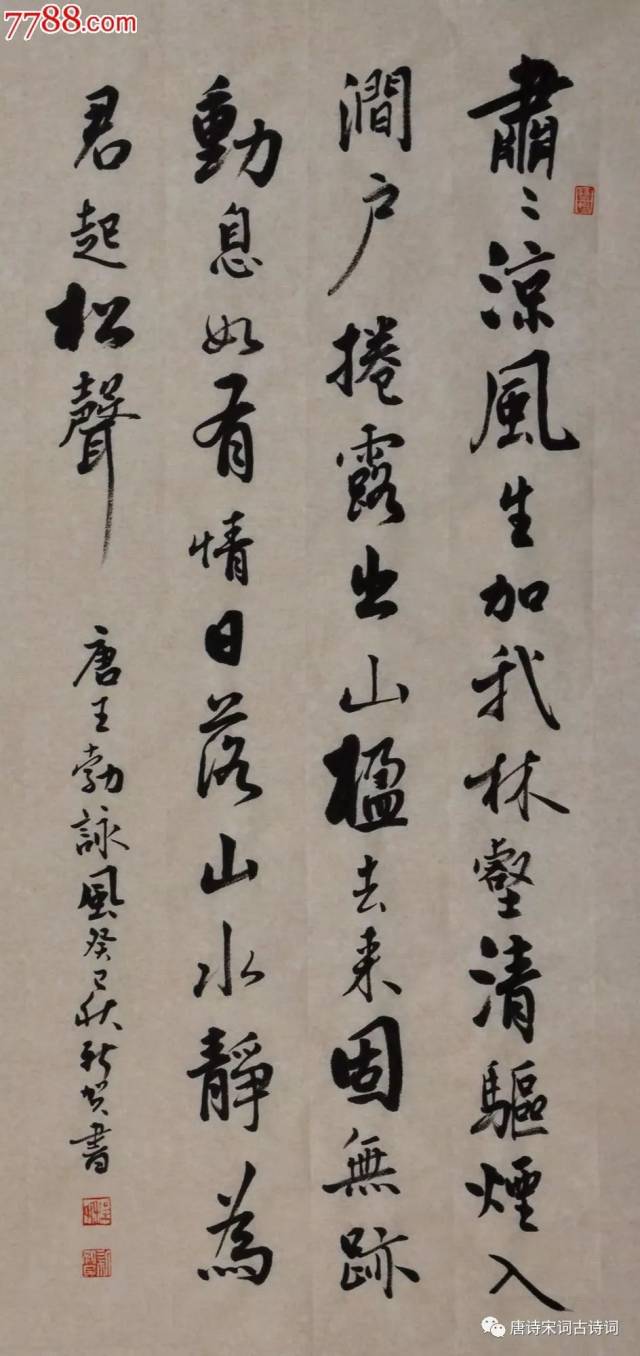 7788.com
肅〻涼風生加我林壑清驅煙入
澗户捲露出山楹去来固無跡
動息如有情日落山水靜為
君起松聲
唐王勃詠風癸巳秋新賀書
唐诗宋词古诗词